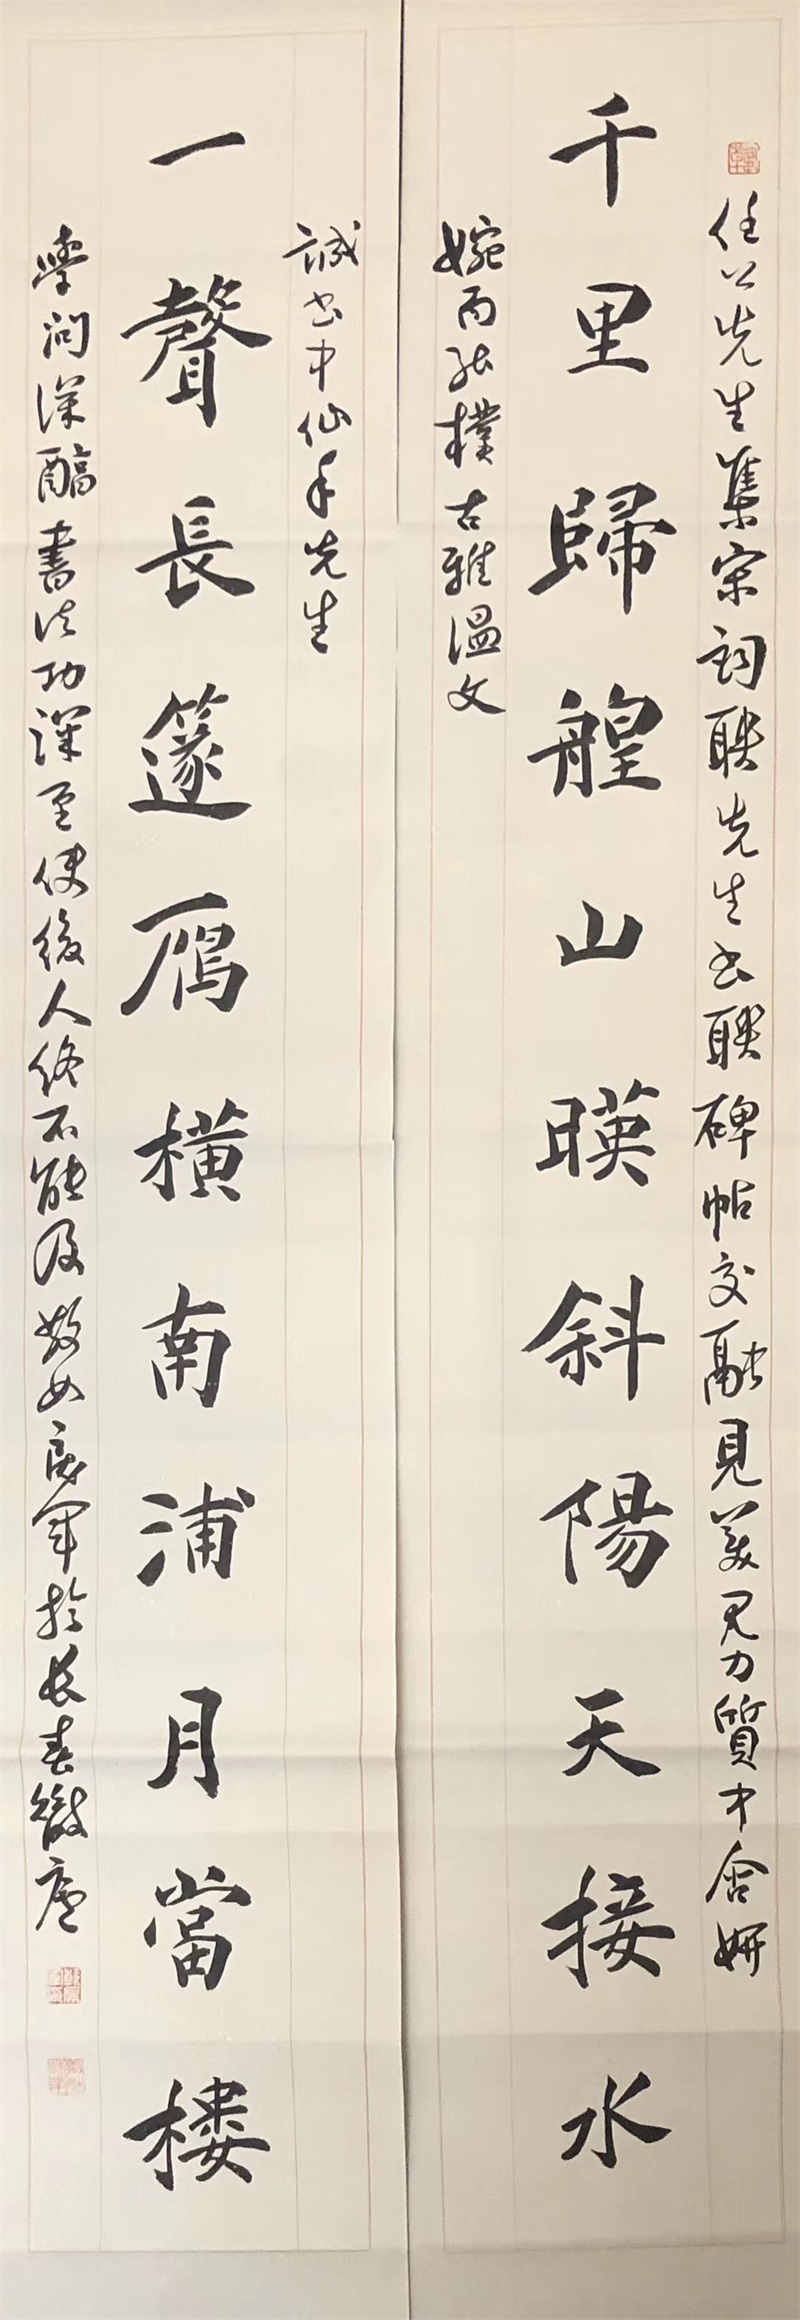 任公先生集宋詞聯先生書聯碑帖交融見美見力質中含妍
千里歸艎山暎斜陽天接水
婉而能樸古雅溫文
誠書中仙手先生
一聲長篴鴈橫南浦月當樓
學問深醇書法功深至使後人終不能及敬如 軍於長春 廬